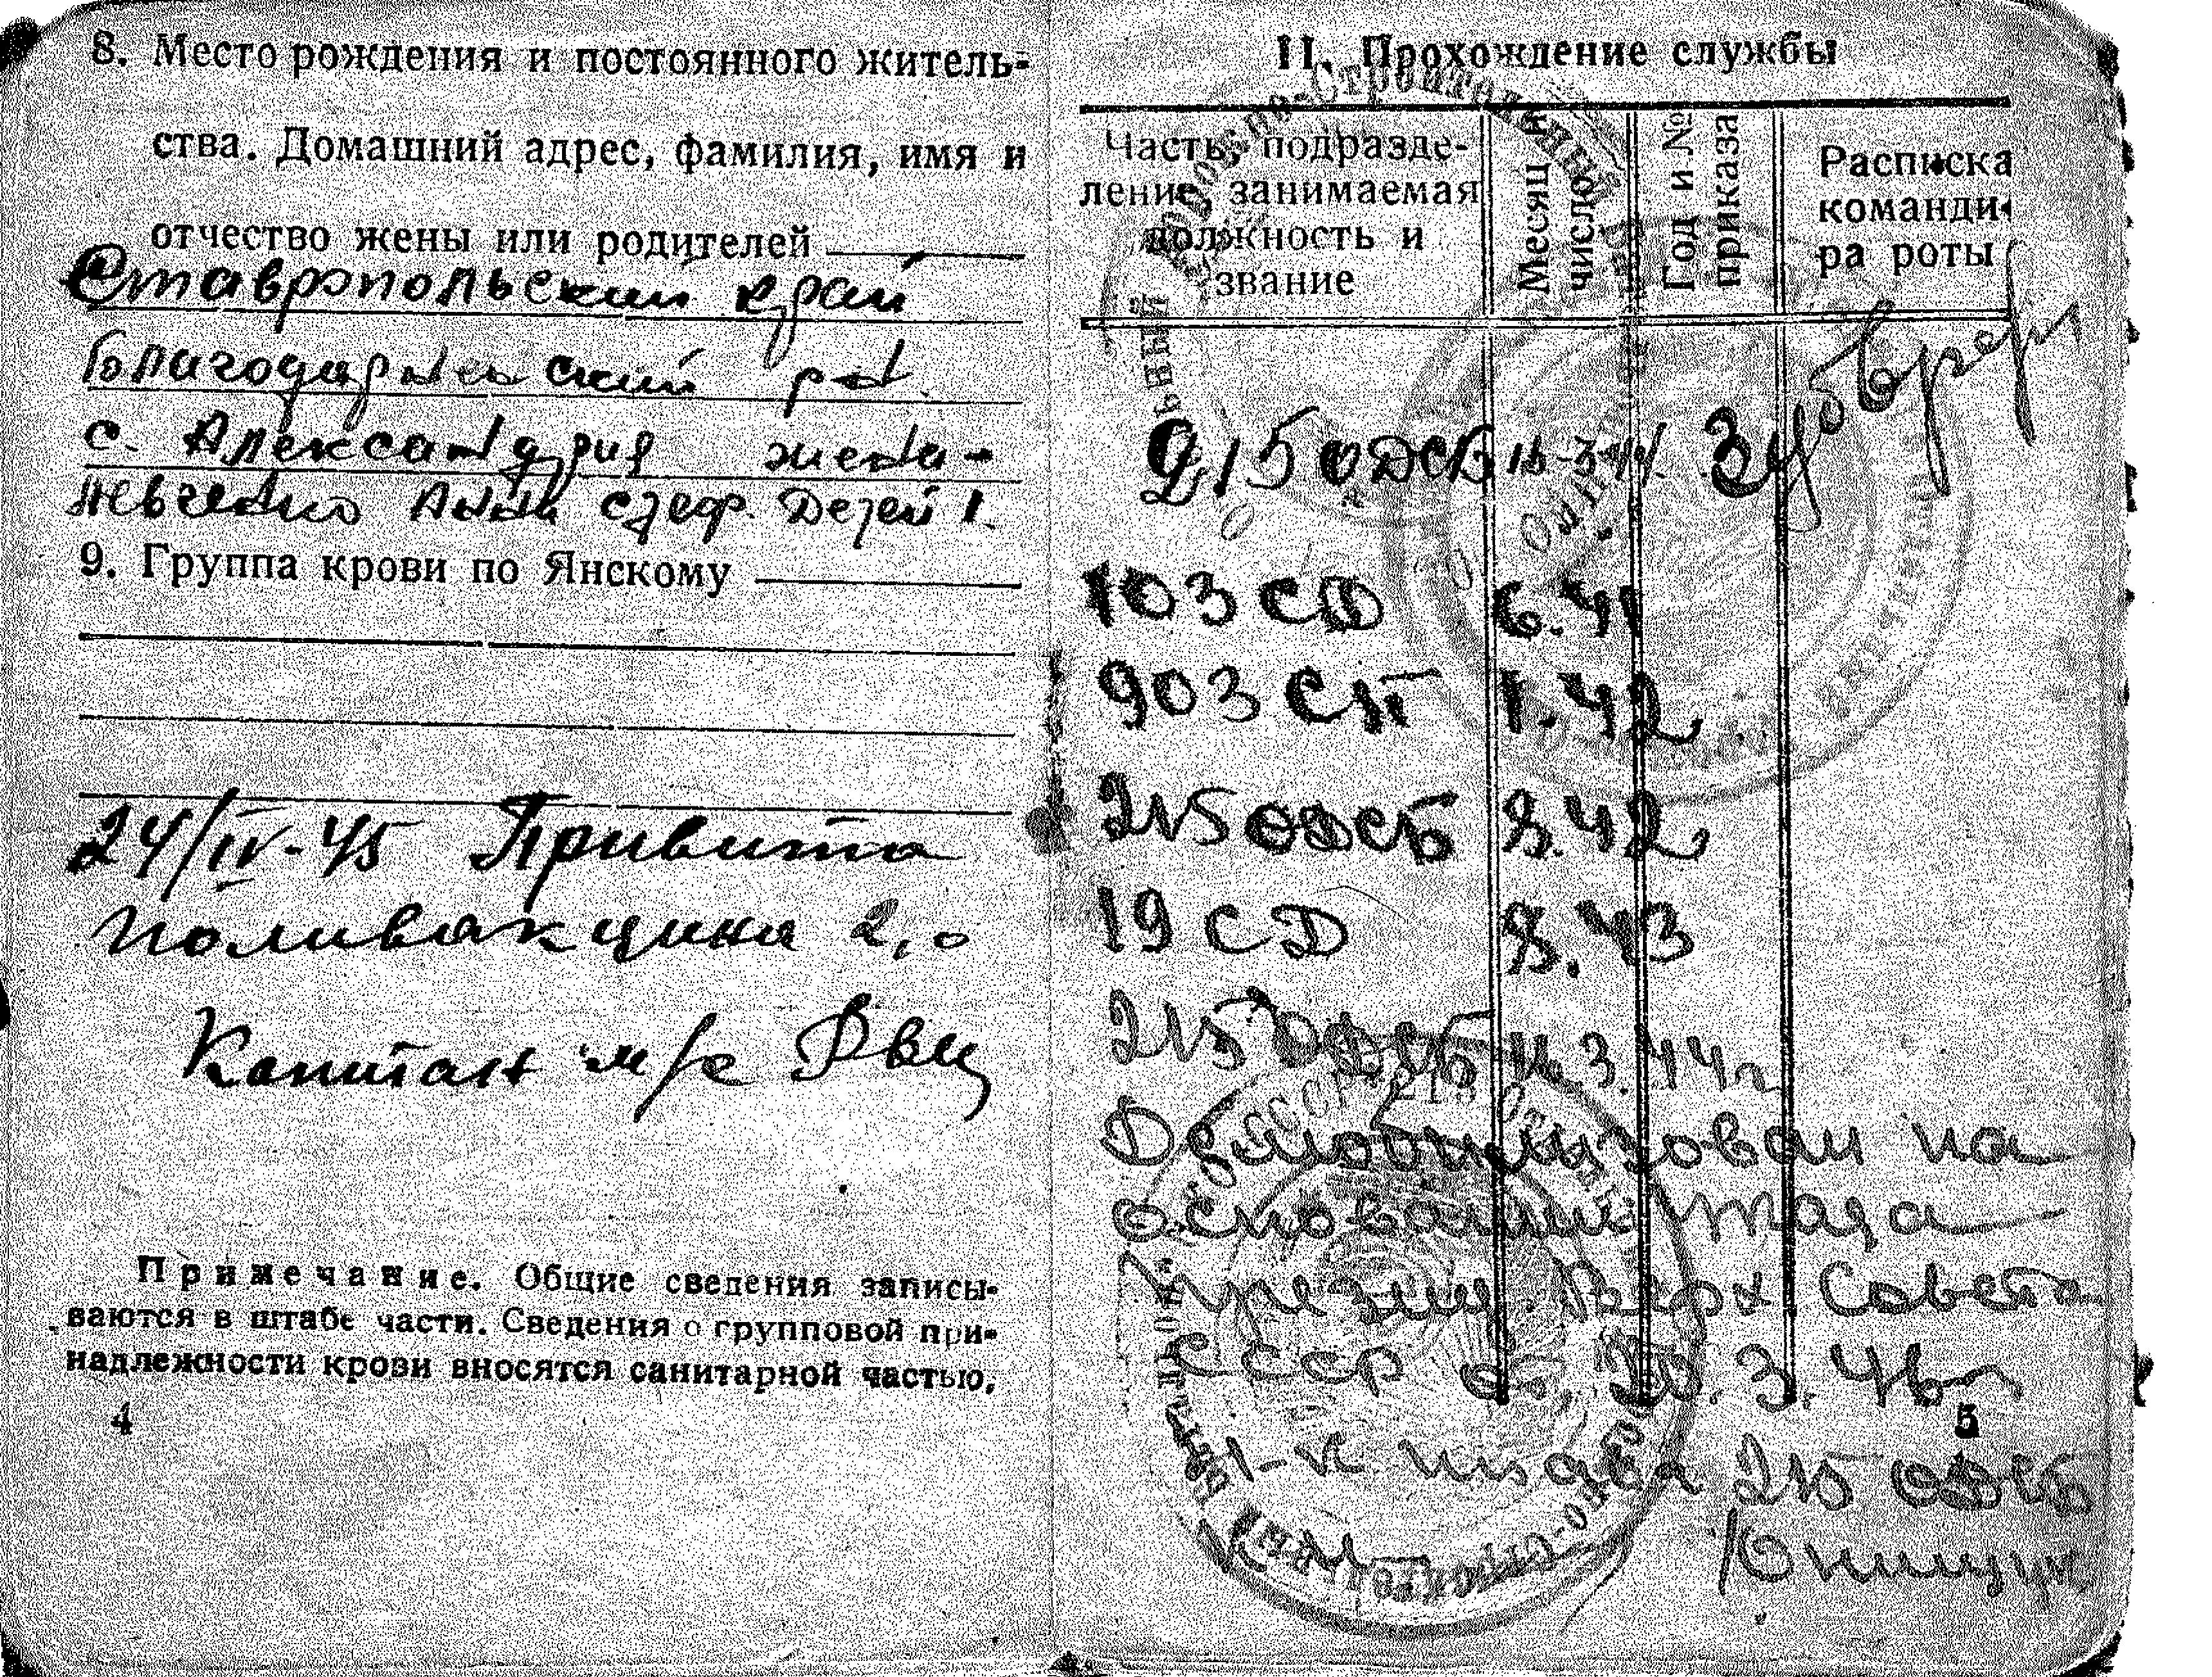 8. Место рождения и постоянного житель-
ства. Домашний адрес, фамилия, имя и
отчество жены или родителей
Ставропольский край
Благодарненский р-н.
с. Александрия жена -
Левченко Анна Стеф. Детей 1.
9. Группа крови по Янскому
24/IV-45 Привита
поливакцина 2,0
Капитан м/с
Примечание. Общие сведения записы-
ваются в штабе части. Сведения о групповой при-
надлежности крови вносятся санитарной частью,
4
II. Прохождение службы
Часть, подразде-
ление, занимаемая
должность и
звание
Месяц и
число
Год и №
приказа
Расписка
команди-
ра роты
215 ОДСБ 16-3-44.
103 СД 6.41
903 СП 1.42
215 ОДСБ 8.42
19 СД 8.43
215 ОДСБ 16.3.44г
Демобилизован на
основании Указа
Президиу. Верх Совета
СССР от 20.3.46г
Н-к штаба 215 ОДСБ
5